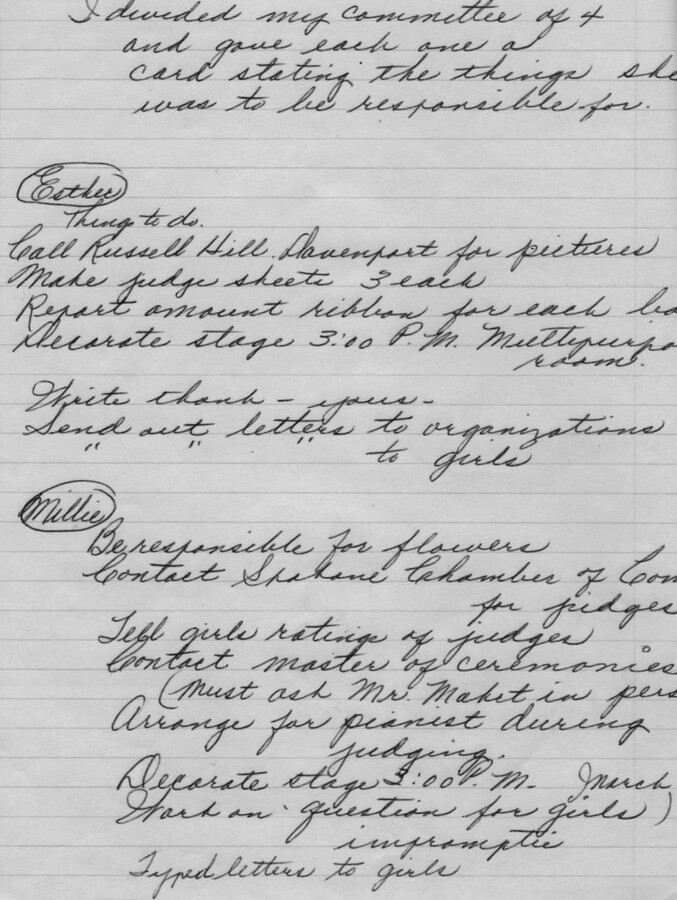 I divided my committee of 4
and gave each one a
card stating the things she
was to be responsible for.
Esther
Things to do.
Call Russell Hill. Davenport for pictures
Make judge sheets 3 each
Report amount ribbon for each
Decorate stage 3:00 P.M. Multipurpo
room.
Write thank-yous-
Send out letters to organizations
" " " to girls
Millie
Be responsible for flowers
Contact Spokane Chamber of Com
for judges
Tell girls rating of judges
Contact master of ceremonies
(Must ask Mr. in pers
Arrange for pianist during
judging.
Decorate stage 3:00 P.M. March
Work on question for girls)
impromptie
Typed letters to girls